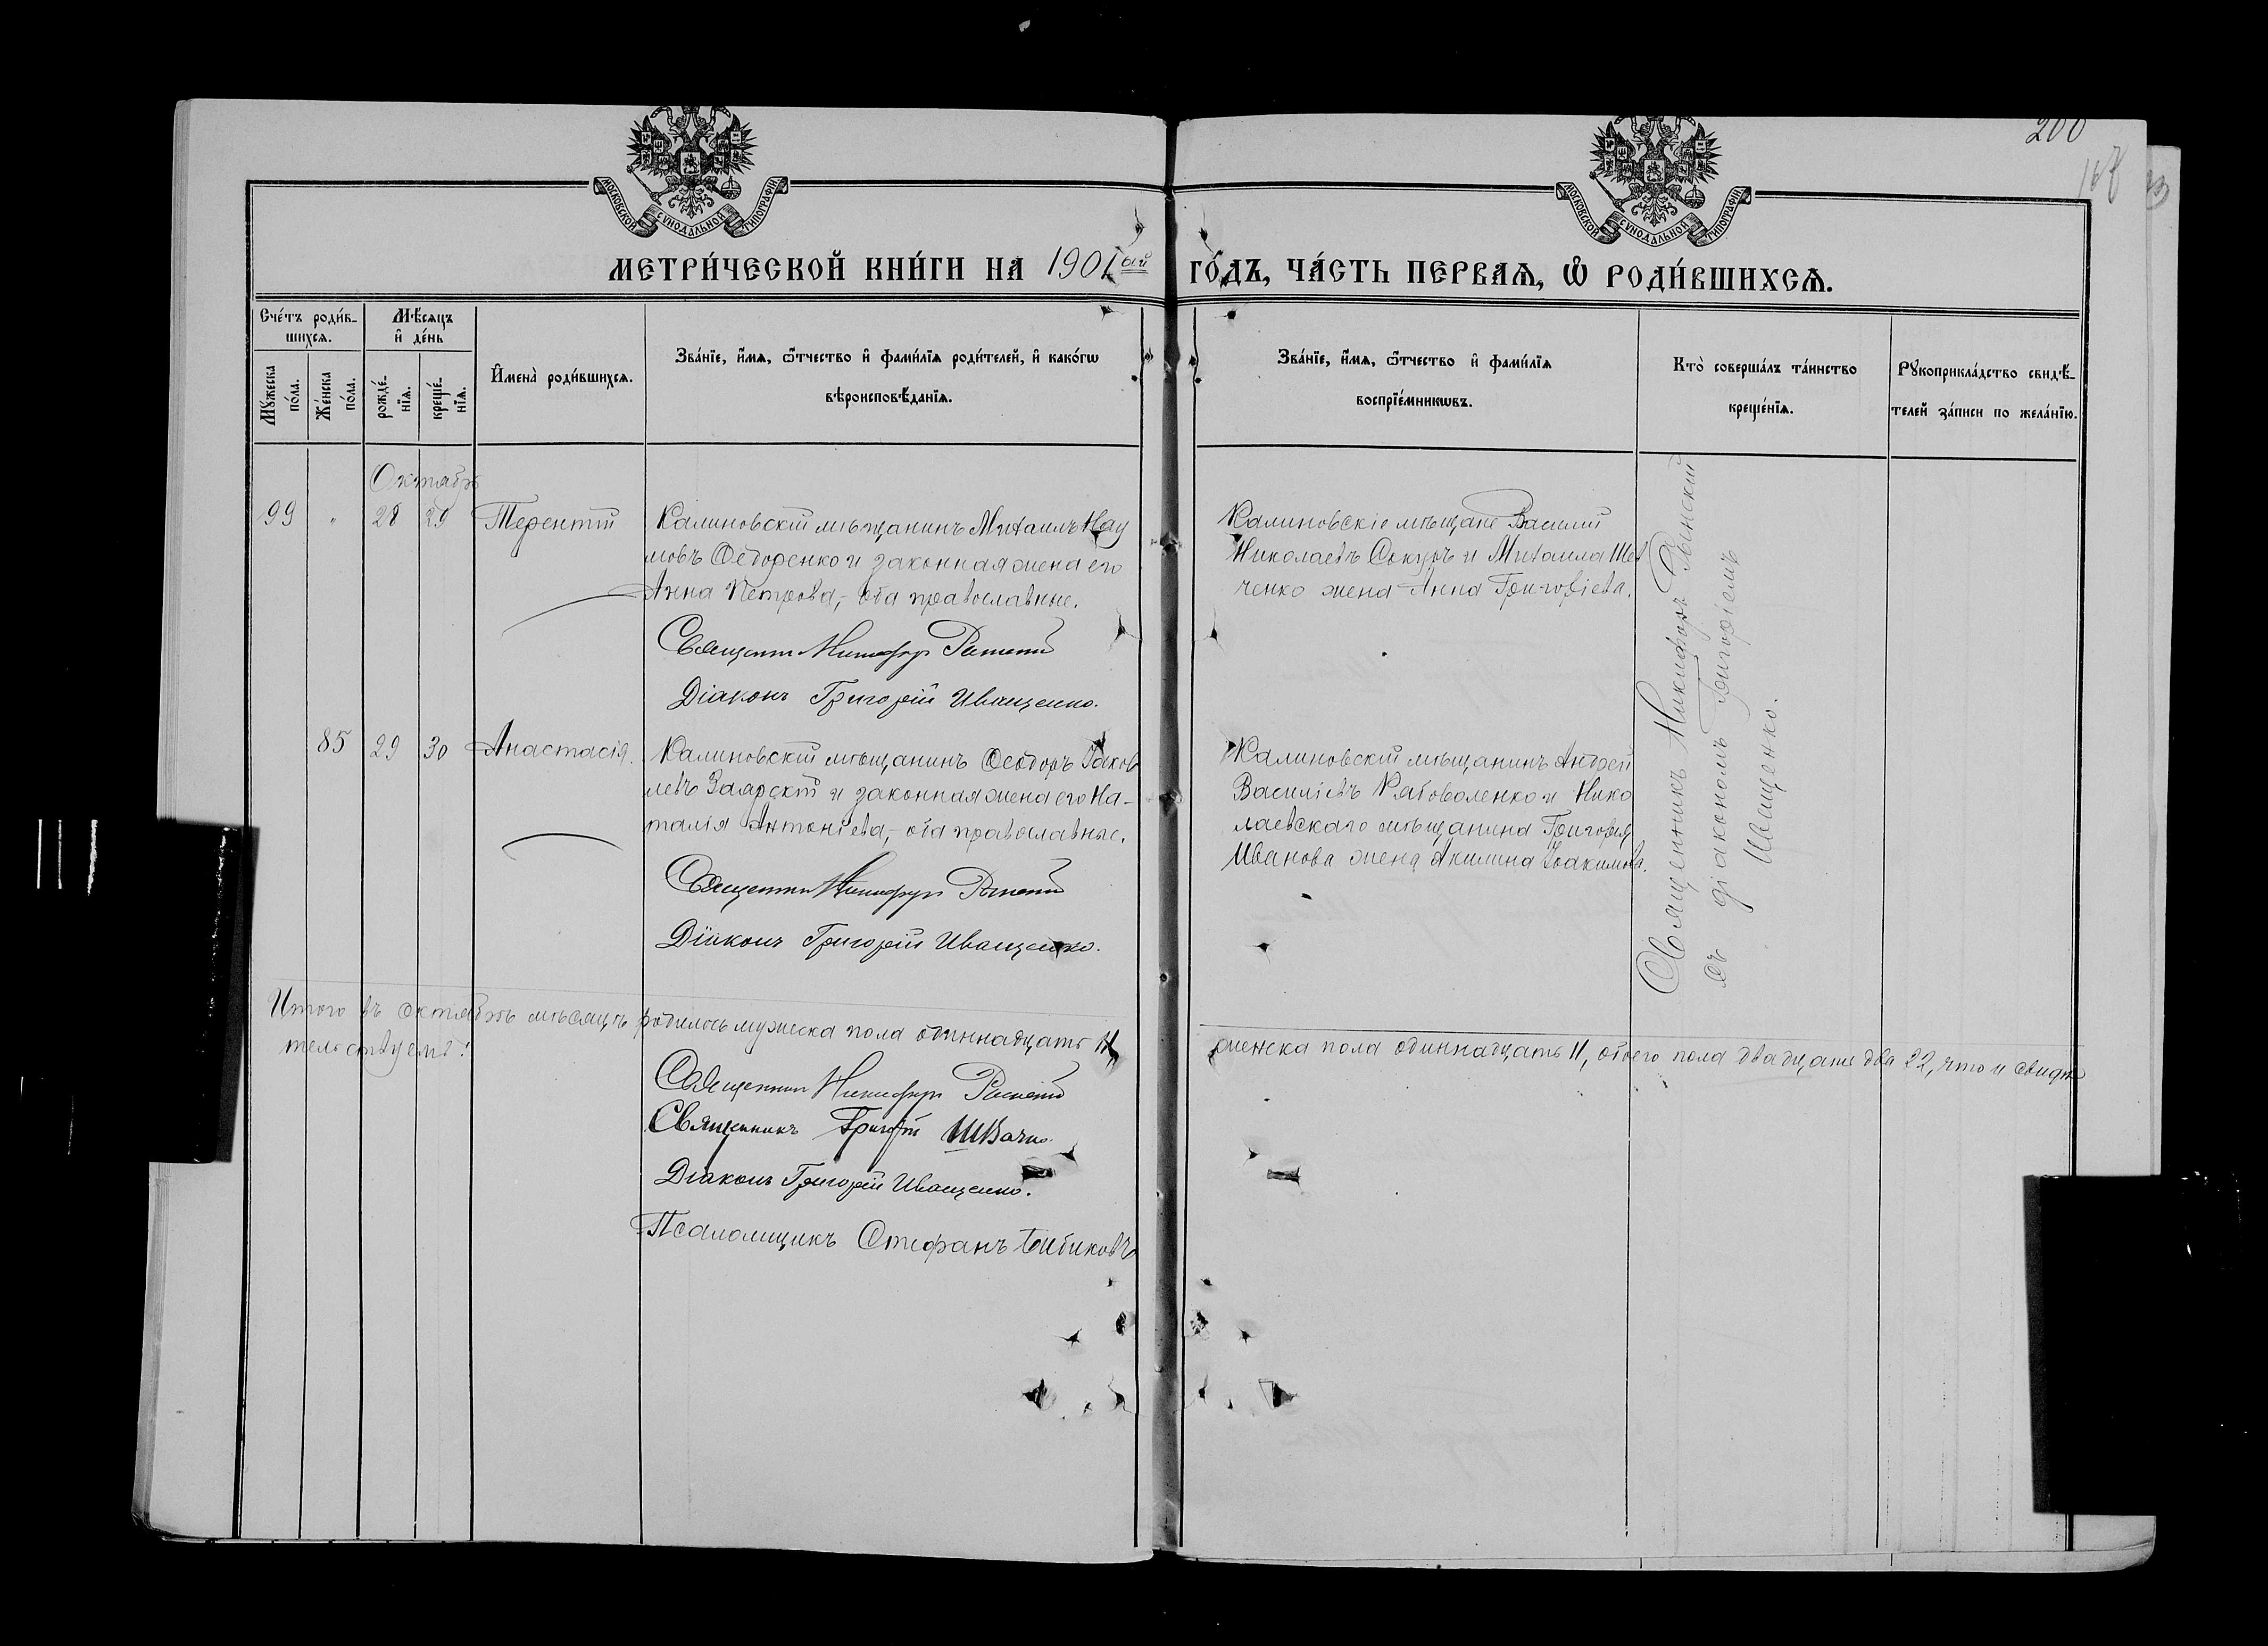 200
167
МОСКОВСКОЙ СУНОДАЛЬНОЙ ТИПОГРАФІИ
МОСКОВСКОЙ СУНОДАЛЬНОЙ ТИПОГРАФІИ
МЕТРИ́ЧЕСКОЙ КНИ́ГИ НА 1901ый ГО́ДЪ, ЧА́СТЬ ПЕРВАѦ, Ѽ РОДИ́ВШИХСѦ.
Сче́тъ роди́в-
шихсѧ.
Мꙋ́жеска по́ла.
Же́нска по́ла.
Мѣ́сѧцъ
и҆ де́нь
рожде́-
нїѧ.
креще́-
нїѧ.
И҆мена̀ роди́вшихсѧ.
Зва́нїе, и҆́мѧ, ѻ҆́тчество и҆ фами́лїѧ роди́телей, и҆ како́гѡ
вѣроисповѣ́данїѧ.
Зва́нїе, и҆́мѧ, ѻ҆́тчество и҆ фами́лїѧ
воспрїе́мникѡвъ.
Кто̀ соверша́лъ та́инство
креще́нїѧ.
Рꙋкоприкла́дство свидѣ́-
телей за́писи по жела́нїю.
Октябрь
99 " 28 29 Терентій
Калиновскій мѣщанинъ Михаилъ Нау
мовъ Ѳедоренко и законная жена его
Анна Петрова,- оба православные.
Священникъ Никифоръ
Діаконъ Григорій Иващенко.
Калиновскіе мѣщане Василій
Николаевъ Сокуръ и Михаила Шев
ченко жена Анна Григоріева.
85 29 30 Анастасія.
Калиновскій мѣщанинъ Ѳеодоръ Іаков
левъ Заярскій и законная жена его На-
талія Антоніева,- оба православные.
Священникъ Никифоръ
Діаконъ Григорій Иващенко.
Калиновскій мѣщанинъ Андрей
Василіевъ Рябоволенко и Нико
лаевскаго мѣщанина Григорія
Иванова жена Акилина Іоакимова.
Священникъ Никифоръ
съ діакономъ Григоріемъ
Иващенко.
Итого въ октябрѣ мѣсяцѣ родилось мужеска пола одиннадцать 11, женска пола одиннадцать 11, обоего пола двадцать два 22, что и свидѣ
тельствуемъ:
Священникъ Никифоръ
Священникъ Григорій
Діаконъ Григорій Иващенко.
Псаломщикъ Стефанъ Бибиковъ